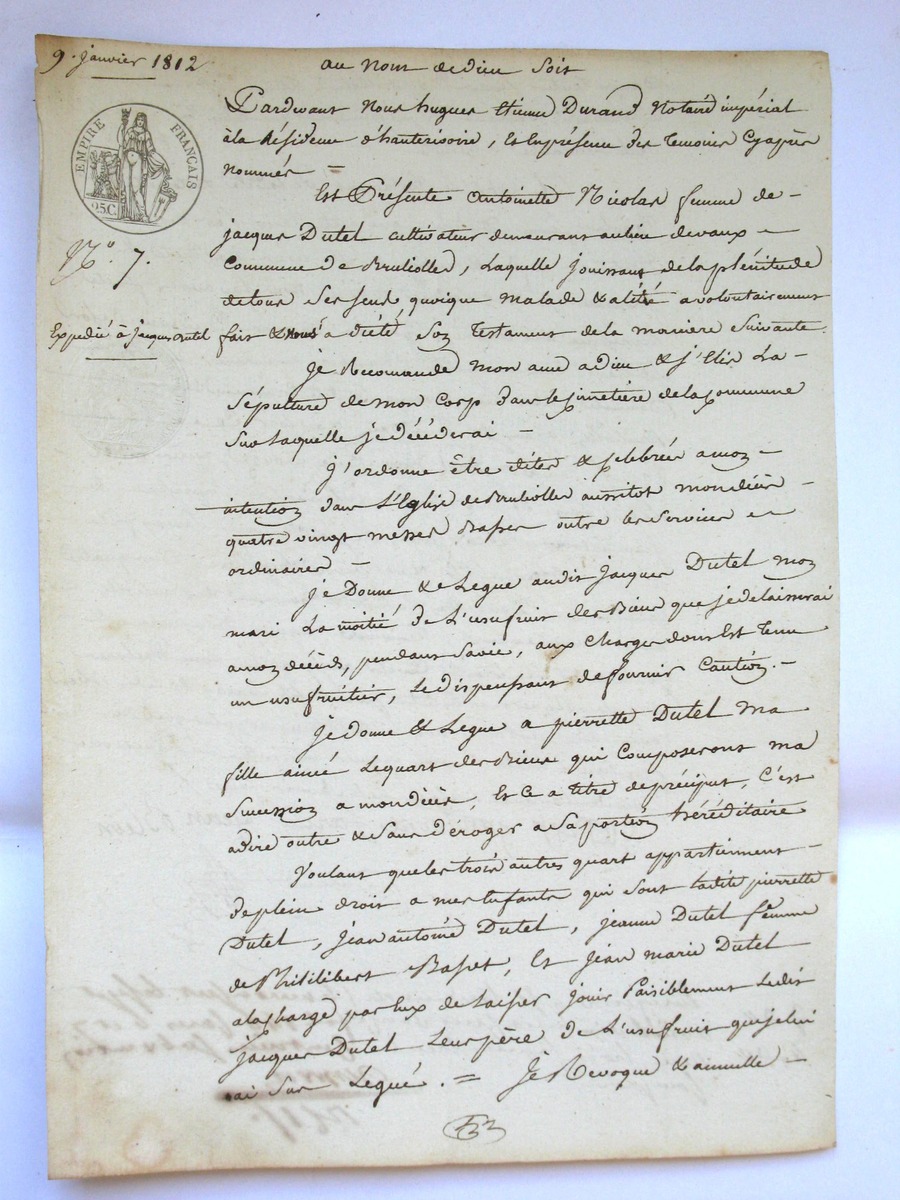 9. janvier 1812
au nom de dieu soit
EMPIRE FRANÇAIS
25C.
Pardevant Nous hugues Etienne Durand Notaire impérial
à la Résidence d'hauterivoire, Et En présence des Temoins Cyaprès
nommés =
Est Présente antoinette Nicolas femme de -
N.o 7.
jacques Dutel cultivateur demeurant au lieu de vaux -
Commune de Brullolles, Laquelle jouissant de la plénitude
de tous Ses Sens quoique malade & alité a volontairement
Expedié à Jacques dutel
fait & Nous a dicté Son Testament de la maniere Suivante.
je Recomande mon ame a dieu & j'Elis La -
Sépulture de mon Corp dans le cimetière de la Commune
Sur Laquelle je décéderai -
j'ordonne être dites & celebrées a mon -
intention dans L'Eglise de Brullolles aussitot mon décès -
quatre vingt messes basses outre les Services -
ordinaires -
je Donne & Legue audit jacques Dutel mon
mari La moitié de L'usufruit des Biens que je delaisserai
a mon décès, pendant Sa vie, aux Charges dont Est Tenu
un usufruitier, Le dispensant de fournir Caution. -
je donne & Legue a pierrette Dutel ma
fille ainée Le quart des Biens qui Composeront ma
Succession a mon décès, Et Ce a titre de préciput, C'est
adire outre & Sans déroger a Sa portion héréditaire
Voulant que les trois autres quart appartiennent -
de plein droit a mes Enfants qui Sont Ladite pierrette
Dutel, jean antoine Dutel, jeanne Dutel femme
de Philibert Basset, Et jean marie Dutel
a la Charge par Eux de Laisser jouir Paisiblement Ledit
jacques Dutel Leur père de L'usufruit que je lui
ai Sus Legué. = Je Revoque & annulle -